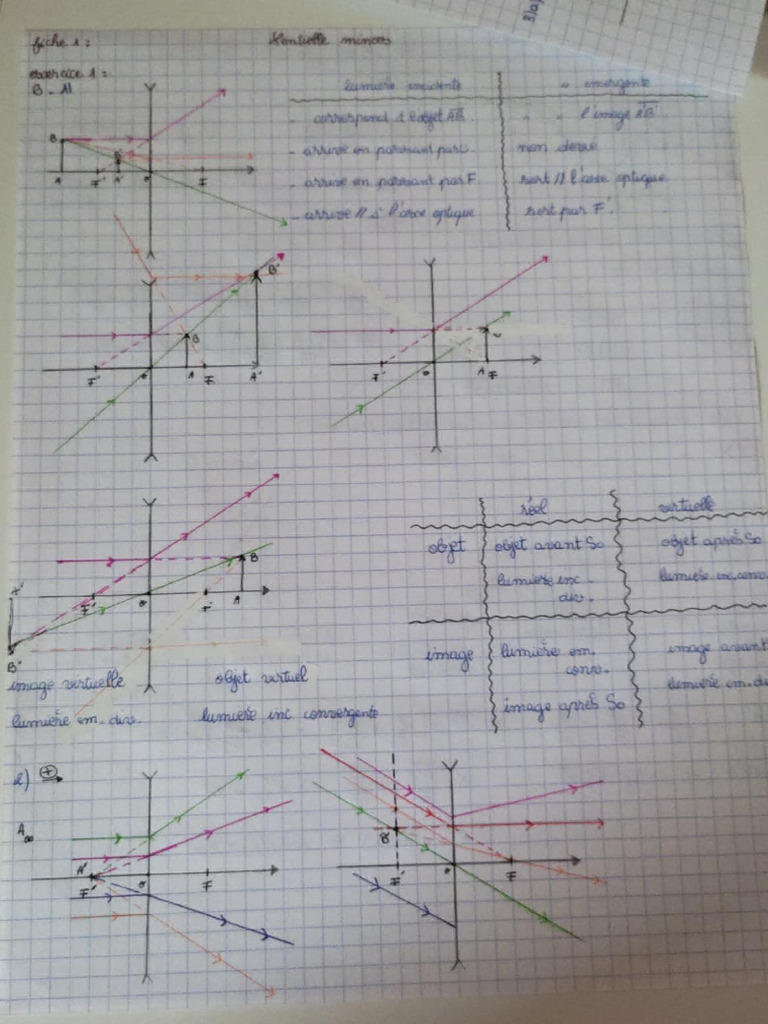 3)a)
fiche 1 :
Lentille minces
exercice 1 :
B - 1)
lumière incidente
" émergente
- correspond à l'objet AB
" " l'image A'B'
- arrive en passant par
non dévié
- arrive en passant par F
sort // l'axe optique
- arrive // à l'axe optique
sort par F'
B
A F' A' O F
B'
B
F' O A F A'
F' O A F
réel virtuelle
objet objet avant So objet après So
lumière inc. lumière inc.conv
div.
image lumière em. image avant
conv. lumière em.di
image après So
A'
B
F' O F A
B'
image virtuelle objet virtuel
lumière em. div. lumière inc convergente
2) +
A∞
A'
F' O F
F' O F